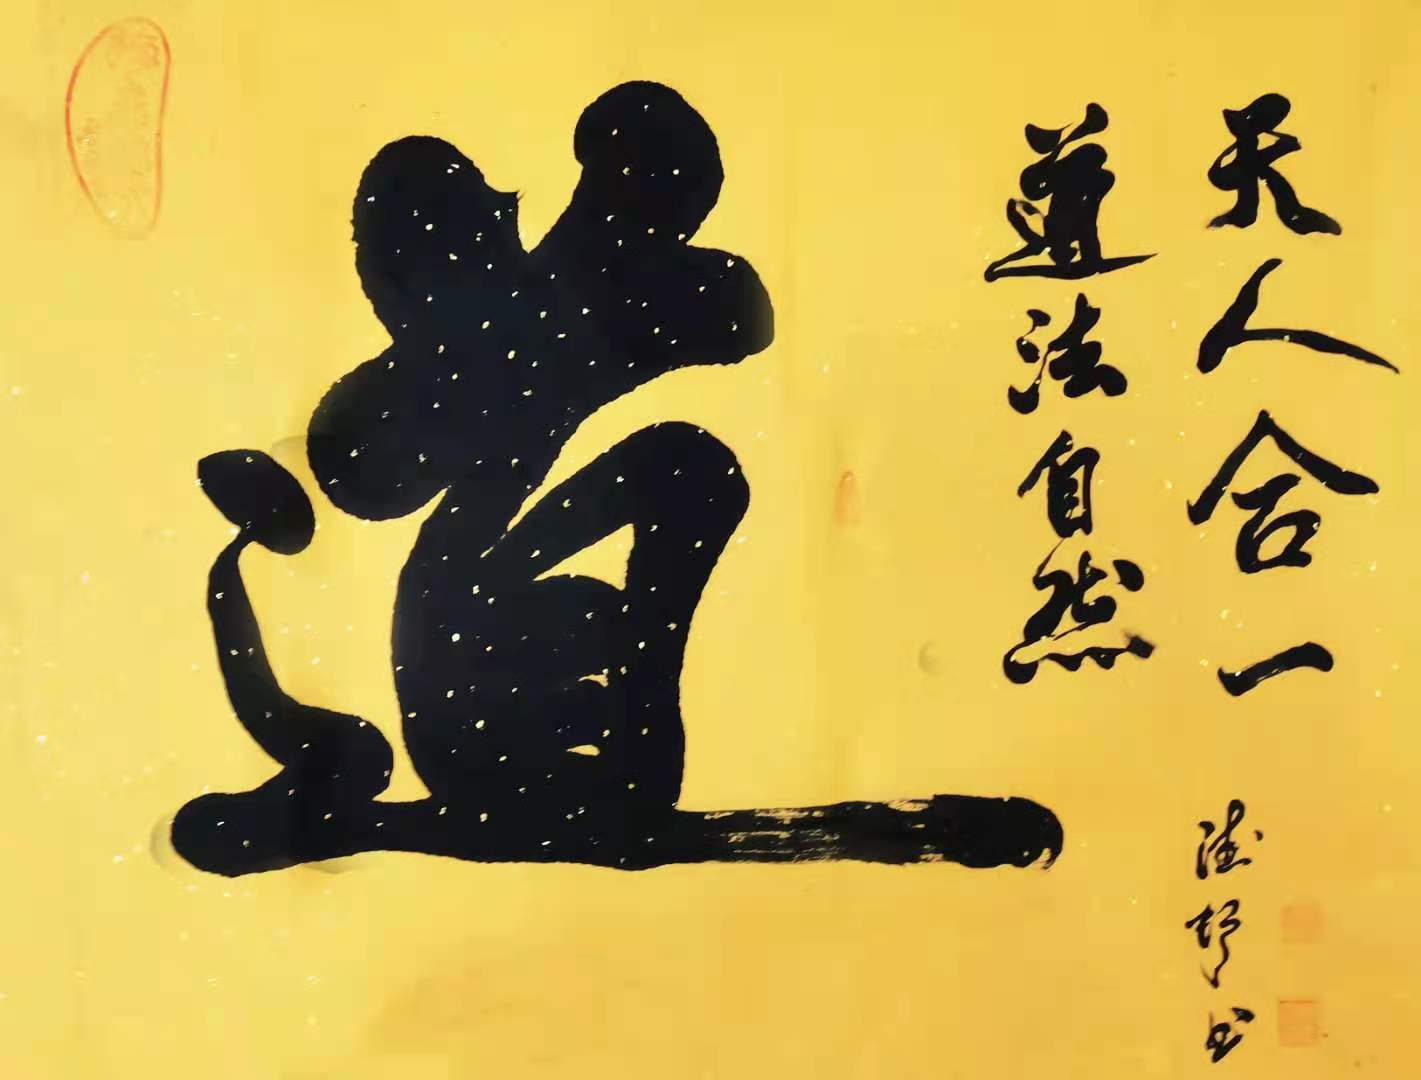 天人合一
道法自然
道